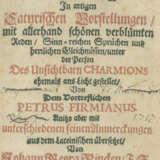 In artigen
Satyrischen Vorstellungen /
mit allerhand schönen verblümten
Reden / Sinn-reichen Sprüchen und
herrlichen Gleichnüssen / unter
der Person
Des Unsichtbarn CHARMIONS
ehemals ans Licht gestellet /
Von
Dem Vortrefflichen
PETRUS FIRMIANUS.
Anitzo aber mit
unterschiedenen feinen Anmerckungen
aus dem Lateinischen übersetzet /
Von
Johann